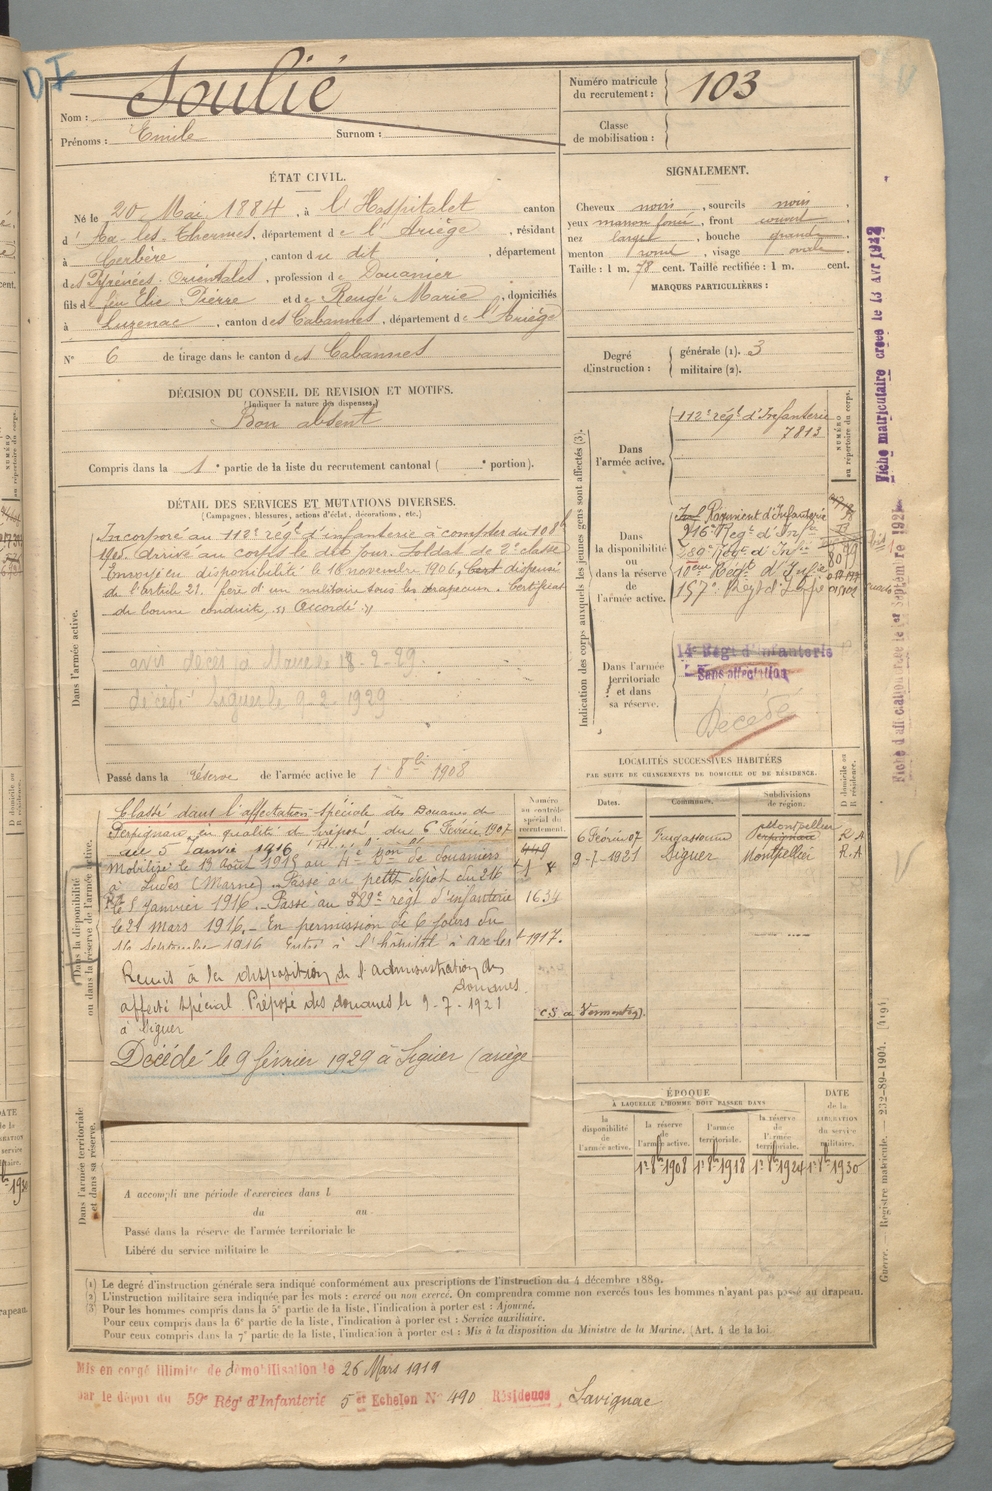 DI
Nom : Soulié
Prénoms : Emile Surnom :
Numéro matricule
du recrutement : 103
Classe
de mobilisation :
ÉTAT CIVIL.
Né le 20 Mai 1884, à l'Hospitalet canton
d'Ax-les-Thermes, département de l'Ariège, résidant
à Cerbère, canton du dit, département
des Pyrénées-Orientales, profession de Douanier
fils de feu Elie Pierre et de Rougé Marie, domiciliés
à Luzenac, canton des Cabannes, département de l'Ariège
N° 6 de tirage dans le canton des Cabannes
SIGNALEMENT.
Cheveux noirs, sourcils noirs,
yeux marron foncé, front couvert,
nez large, bouche grande,
menton rond, visage ovale
Taille : 1 m. 78 cent. Taille rectifiée : 1 m. cent.
MARQUES PARTICULIÈRES :
Degré
d'instruction :
générale (1). 3
militaire (2).
DÉCISION DU CONSEIL DE REVISION ET MOTIFS.
(Indiquer la nature des dispenses.)
Bon absent
Compris dans la 1e partie de la liste du recrutement cantonal ( e portion).
DÉTAIL DES SERVICES ET MUTATIONS DIVERSES.
(Campagnes, blessures, actions d'éclat, décorations, etc.)
Dans l'armée active.
Incorporé au 112e régt d'infanterie à compter du 10 8bre
1905. Arrivé au corps le dit jour. Soldat de 2e classe
Envoyé en disponibilité le 18 novembre 1906, dispensé
de l'article 21. frère d'un militaire sous les drapeaux. Certificat
de bonne conduite, "Accordé"
avis décès Maire le 18-2-29
décédé Siguer le 9-2-1929
Passé dans la réserve de l'armée active le 1er 8bre 1908
Indication des corps auxquels les jeunes gens sont affectés (3).
NUMÉRO
au répertoire du corps.
Dans
l'armée active.
112e régt d'Infanterie
7813
Dans
la disponibilité
ou
dans la réserve de
l'armée active.
Régiment d'Infanterie
216e Régt d'Infie
280e Régt d'Infie
10eme Régt d'Infie
157e Régt d'Infie
Dans l'armée
territoriale
et dans
sa réserve.
14e Régt d'Infanterie
Sans affectation
Décédé
Dans la disponibilité
ou dans la réserve de l'armée active.
Classé dans l'affectation spéciale des Douanes de
Perpignan en qualité de préposé du 6 Février 1907
au 5 Janvier 1916
Mobilisé le 13 Août 1915 au 4e Bon de douaniers
à Ludes (Marne) Passé au petit dépôt du 216
le 8 janvier 1916. Passé au 329e régt d'infanterie
le 29 mars 1916. En permission de 6 jours du
septembre 1916 Entré à l'hôpital à Ax les
Remis à la disposition de l'administration des
Douanes.
affecté spécial Préposé des douanes le 9-7-1921
à Siguer
Décédé le 9 février 1929 à Siguer (Ariège
Numéro
au contrôle
spécial du
recrutement.
449
1634
1917.
LOCALITÉS SUCCESSIVES HABITÉES
PAR SUITE DE CHANGEMENTS DE DOMICILE OU DE RÉSIDENCE.
Dates. Communes. Subdivisions
de région. D domicile ou
R résidence.
6 Février 07 Montpellier Perpignan R.A
9-7-1921 Siguer Montpellier R.A.
ÉPOQUE
À LAQUELLE L'HOMME DOIT PASSER DANS
la
disponibilité
de
l'armée active.
la réserve
de
l'armée active.
1er 8bre 1908
l'armée
territoriale.
1er 8bre 1918
la réserve
de
l'armée
territoriale.
1er 8bre 1924
DATE
de la
LIBÉRATION
du service
militaire.
1er 8bre 1930
Dans l'armée territoriale
et dans sa réserve.
A accompli une période d'exercices dans l
du au
Passé dans la réserve de l'armée territoriale le
Libéré du service militaire le
(1) Le degré d'instruction générale sera indiqué conformément aux prescriptions de l'instruction du 4 décembre 1889.
(2) L'instruction militaire sera indiquée par les mots : exercé ou non exercé. On comprendra comme non exercés tous les hommes n'ayant pas passé au drapeau.
(3) Pour les hommes compris dans la 5e partie de la liste, l'indication à porter est : Ajourné.
Pour ceux compris dans la 6e partie de la liste, l'indication à porter est : Service auxiliaire.
Pour ceux compris dans la 7e partie de la liste, l'indication à porter est : Mis à la disposition du Ministre de la Marine. (Art. 4 de la loi
Mis en congé illimité de démobilisation le 26 Mars 1919
par le dépôt du 59e Régt d'Infanterie 5e Echelon N° 490 Résidence, Savignac
Fiche matriculaire créée le 13 Avr
Fiche d'affectation créée le 1er Septembre
Guerre. — Registre matricule. — 232-89-1904. [419]